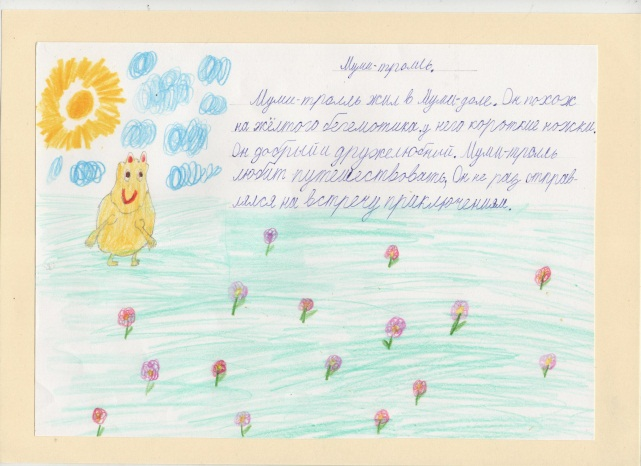 Муми-тролль.
Муми-тролль жил в Муми-доле. Он похож
на жёлтого бегемотика, у него короткие ножки.
Он добрый и дружелюбный. Муми-тролль
любит путешествовать. Он не раз отправ-
лялся на встречу приключениям.